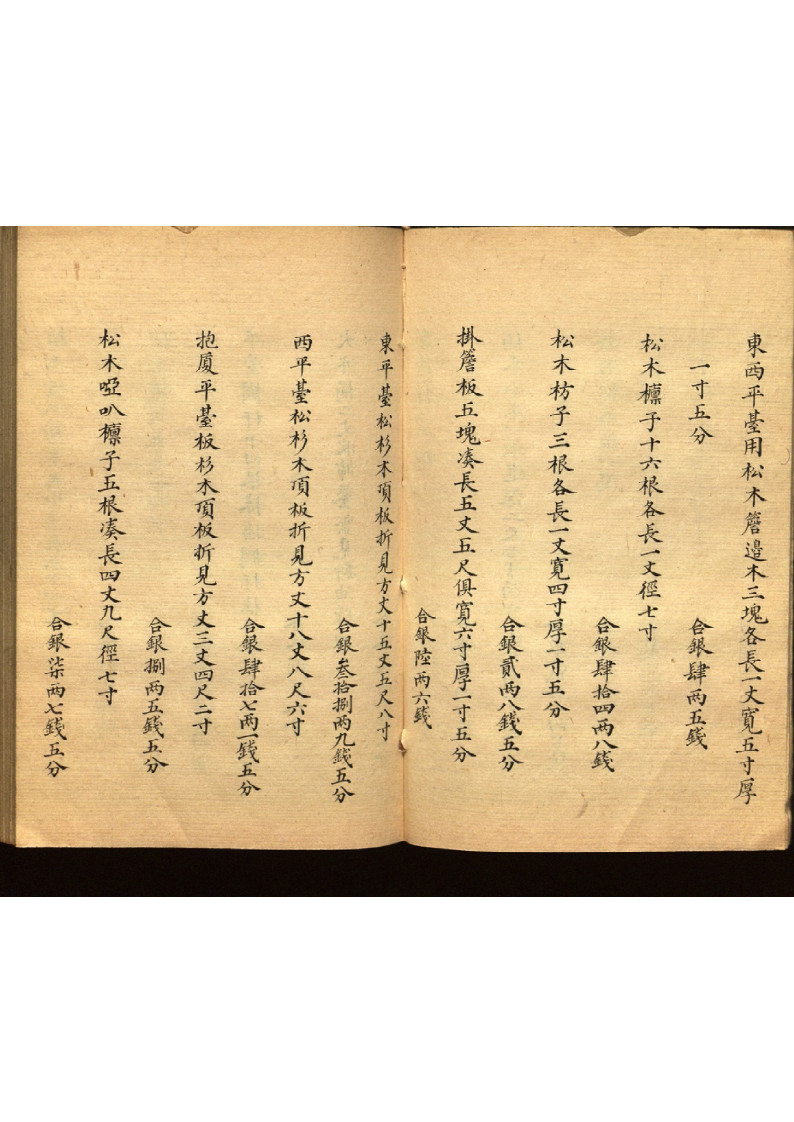 東西平臺用松木簷邉木三塊各長一丈寛五寸厚
一寸五分
合銀肆两五錢
松木檩子十六根各長一丈徑七寸
合銀肆拾四两八錢
松木枋子三根各長一丈寛四寸厚一寸五分
合銀貳两八錢五分
掛簷板五塊凑長五丈五尺俱寛六寸厚一寸五分
合銀陸两六錢
東平臺松杉木頂板折見方丈十五丈五尺八寸
合銀叁拾捌两九錢五分
西平臺松杉木頂板折見方丈十八丈八尺六寸
合銀肆拾七两一錢五分
抱厦平臺板杉木頂板折見方丈三丈四尺二寸
合銀捌两五錢五分
松木啞叭檩子五根凑長四丈九尺徑七寸
合銀柒两七錢五分